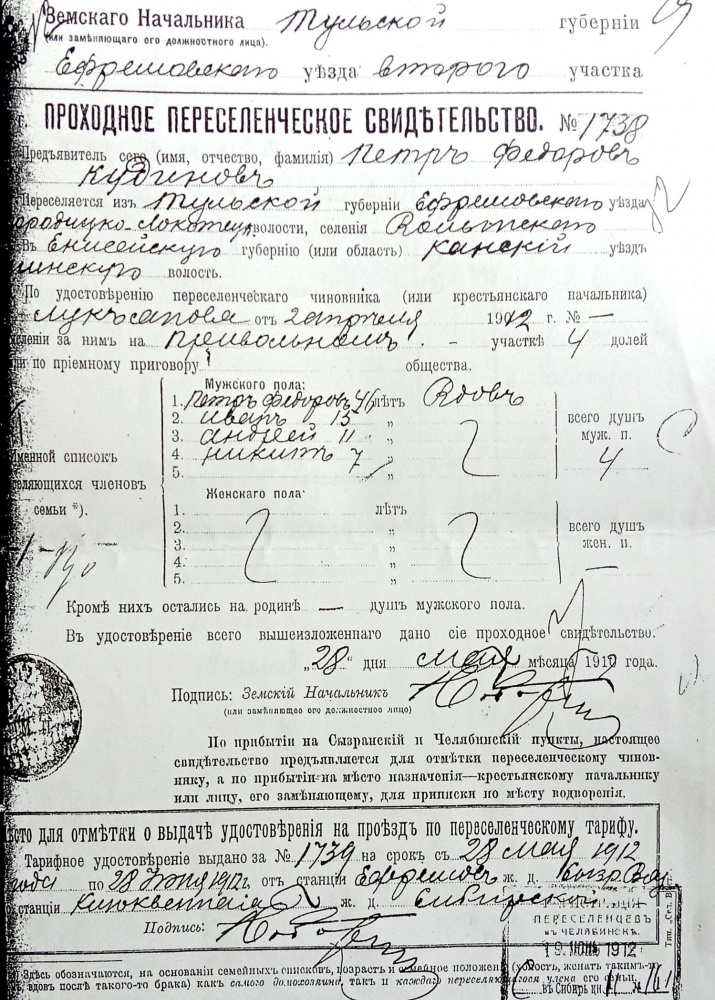 Земскаго Начальника Тульской губерніи
(или заменяющаго его должностного лица).
Ефремовскаго уѣзда второго участка
ПРОХОДНОЕ ПЕРЕСЕЛЕНЧЕСКОЕ СВИДѢТЕЛЬСТВО. № 1738
Предъявитель сего (имя, отчество, фамилія) Петръ Федоровъ
Кудиновъ
Переселяется изъ Тульской губерніи Ефремовскаго уѣзда
волости, селенія
Въ Енисейскую губернію (или область) Канскій уѣздъ
волость.
По удостовѣренію переселенческаго чиновника (или крестьянскаго начальника)
отъ 2 апреля 1912 г. № —
за нимъ на Привольномъ участкѣ 4 долей
по пріемному приговору общества.
Мужского пола:
1. Петръ Федоровъ 46 лѣтъ Вдовъ
2. Иванъ 15 „
3. Андрей 11 „
4. Никита 7 „
5. „
всего душъ
муж. п.
4
Именной списокъ
переселяющихся членовъ
семьи *).
Женскаго пола:
1. лѣтъ
2. „
3. „
4. „
5. „
всего душъ
жен. п.
—
Кромѣ нихъ остались на родинѣ — душъ мужского пола.
Въ удостовѣреніе всего вышеизложеннаго дано сіе проходное свидѣтельство.
„28" дня мая мѣсяца 1912 года.
Подпись: Земскій Начальникъ
(или замѣняющее его должностное лицо)
По прибытіи на Сызранскій и Челябинскій пункты, настоящее
свидѣтельство предъявляется для отмѣтки переселенческому чинов-
нику, а по прибытіи на мѣсто назначенія—крестьянскому начальнику
или лицу, его замѣняющему, для приписки по мѣсту водворенія.
Мѣсто для отмѣтки о выдачѣ удостовѣренія на проѣздъ по переселенческому тарифу.
Тарифное удостовѣреніе выдано за № 1739 на срокъ съ 28 мая 1912
года по 28 1912 г. отъ станціи Ефремовъ ж. д. Сызр. Вяз.
станціи ж. д. Сибирской
Подпись:
ПЕРЕСЕЛЕНЦЕВЪ
въ ЧЕЛЯБИНСК.
19 ИЮН 1912
въ Сибирь
Здѣсь обозначаются, на основаніи семейныхъ списковъ, возрастъ и семейное положеніе (холость, женатъ
вдовъ послѣ такого-то брака) какъ самого домохозяина, такъ и каждаго переселяющагося члена его семьи.